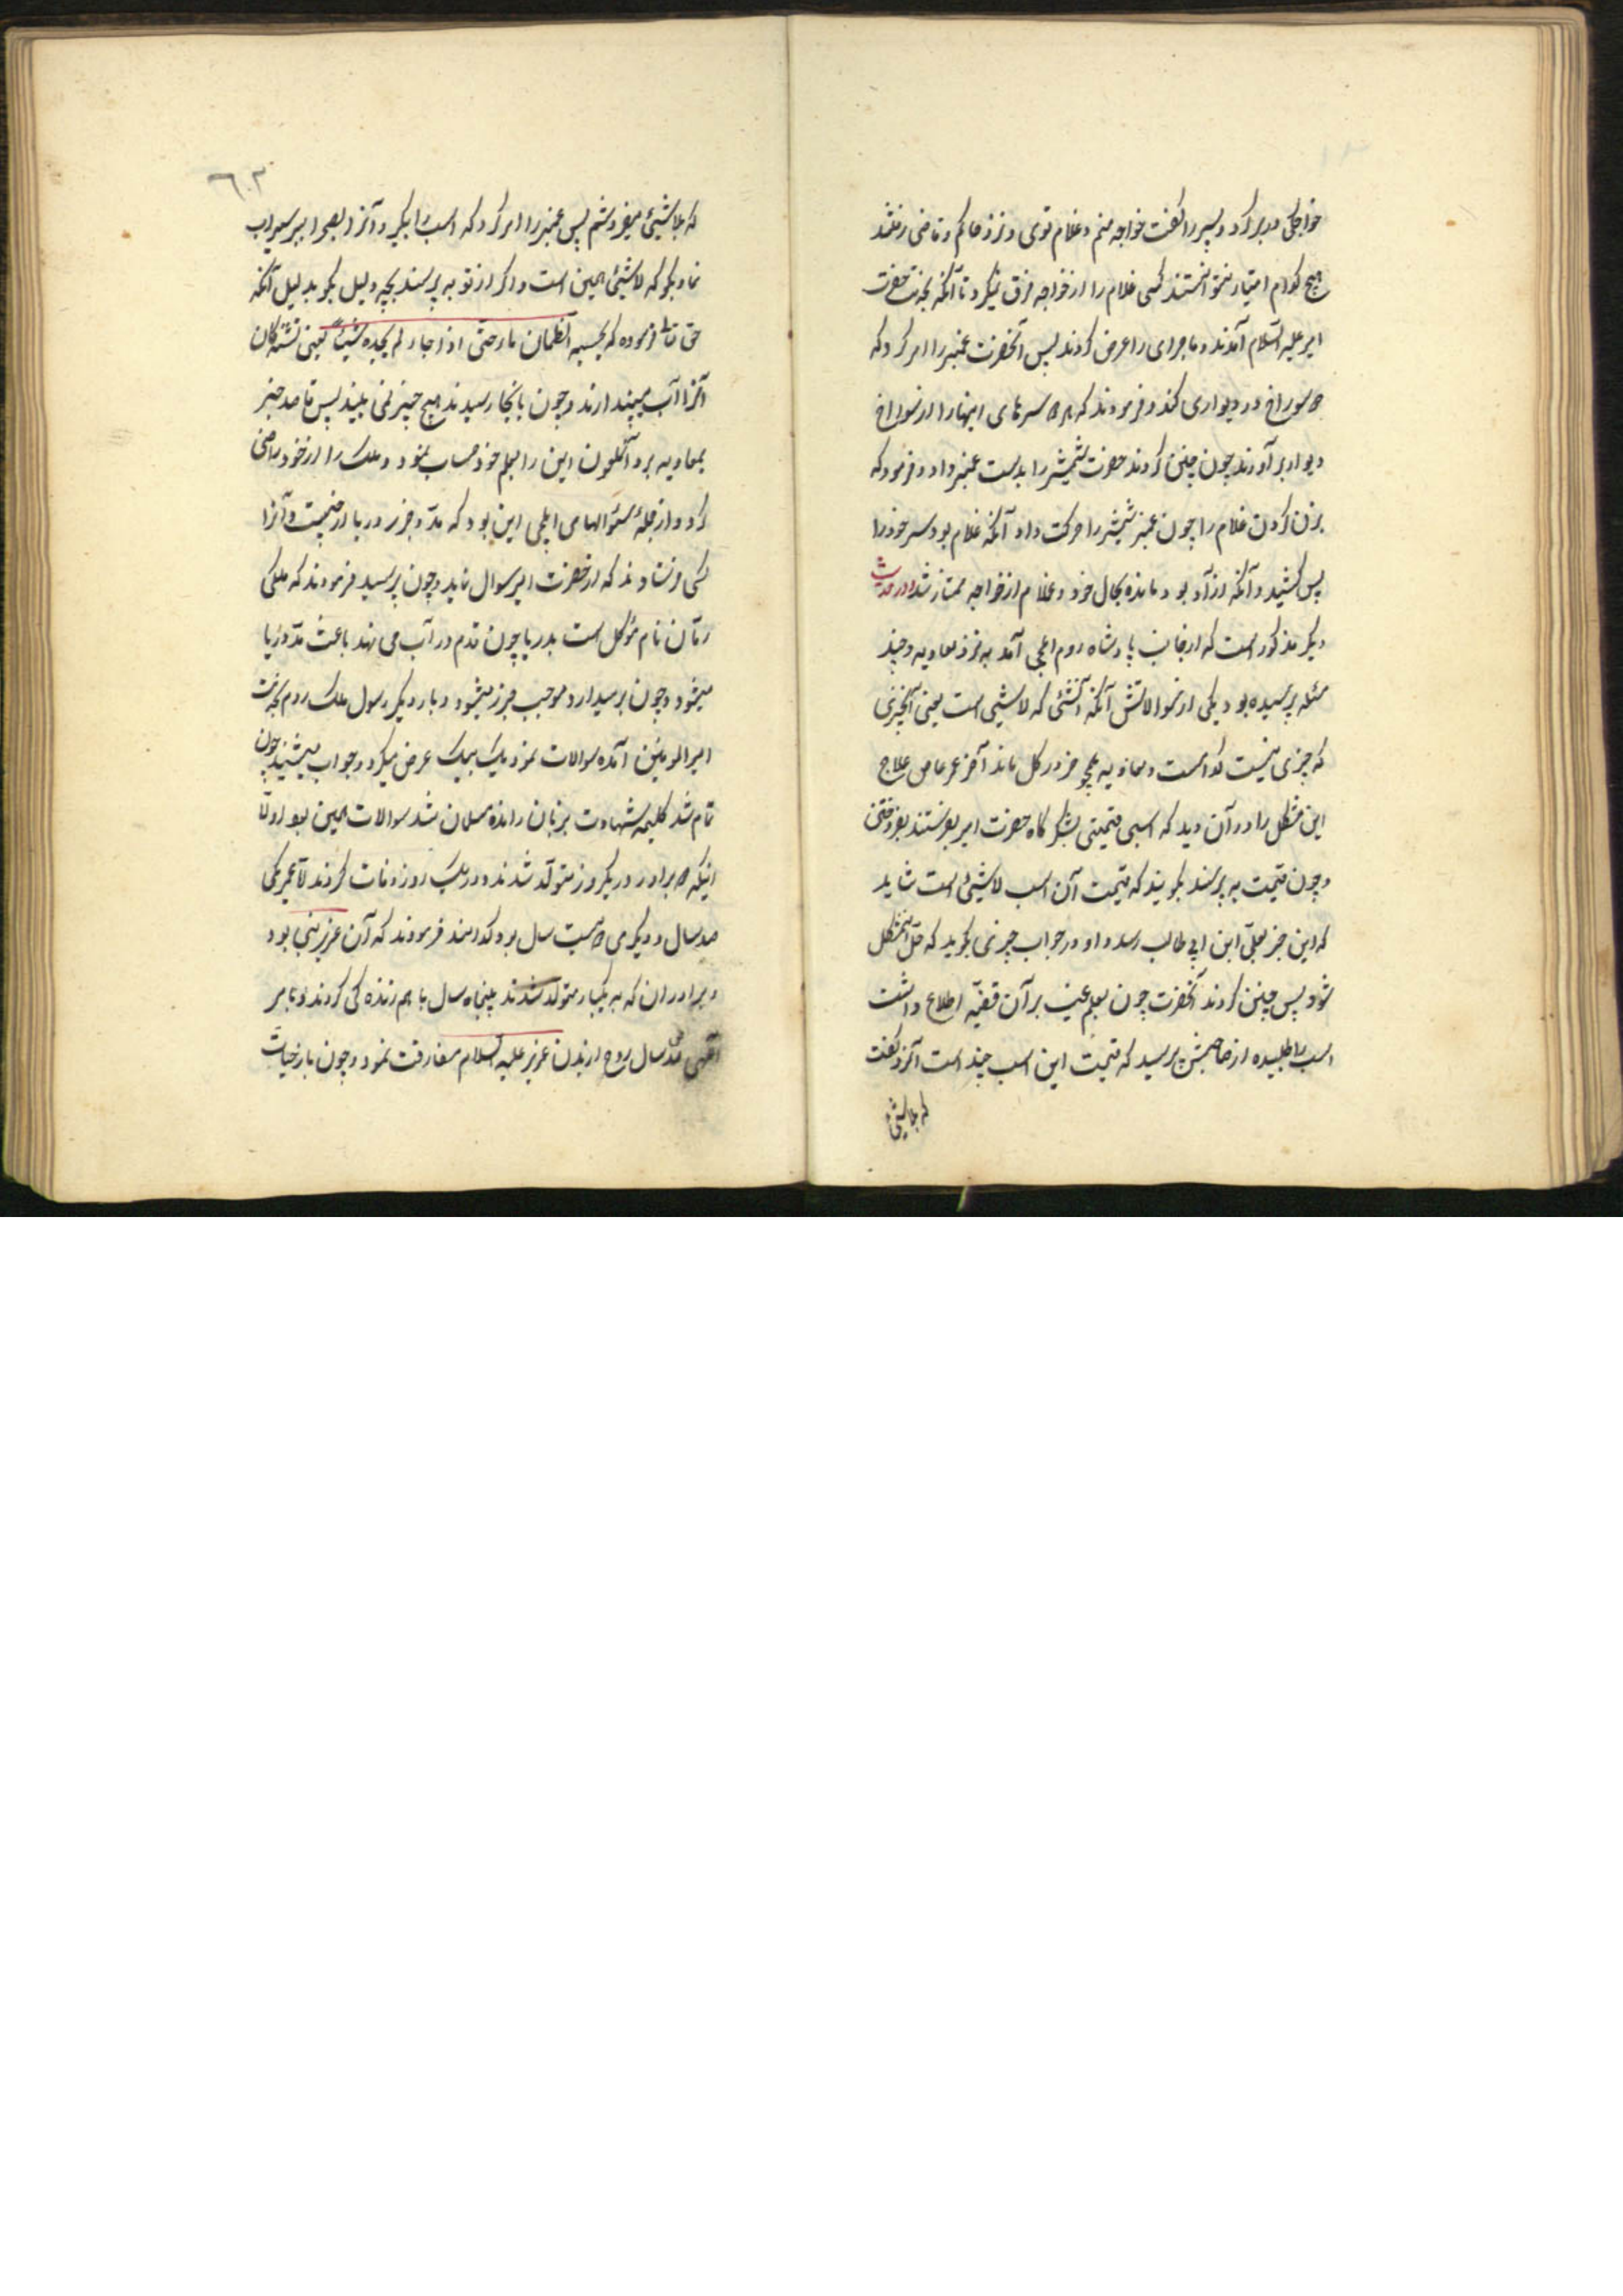 خواجگی دربر کرد و پسر را گفت خواجه منم و غلام توی و نزد حاکم و قاضی رفتند
هیچ کدام امتیاز نتوانستند کسی غلام را از خواجه فرق نمیکرد تا آنکه بخدمت حضرت
امیر علیه السلام آمدند و ماجرای را عرض کردند پس آنحضرت عنبر را امر کرد که
سوراخ در دیواری کند و فرمودند که سرهای اینها را از سوراخ
دیوار برآورند چون چنین کردند حضرت شمشیر را بدست عنبر داد و فرمود که
بزن گردن غلام را چون عنبر شمشیر را حرکت داد آنکه غلام بود سر خود را
پس کشید و آنکه آزاد بود مانده بحال خود و غلام از خواجه ممتاز شد و در حدیث
دیگر مذکور است که از جانب پادشاه روم ایلچی آمد به نزد معاویه و چند
مسئله پرسیده بود یکی از سوالاتش آنکه آنشئی که لاشیئی است یعنی آنچیزی
که چیزی نیست کدامست و معاویه همچو خر در گل ماند آخر عمر عاص علاج
این مشکل را در آن دید که اسبی قیمتی بلشکرگاه حضرت امیر بفرستند بفروختن
و چون قیمت به پرسند بگویند که قیمت آن اسب لاشیئی است شاید
که این خبر بعلی ابن ابی طالب رسد و او در جواب چیزی بگوید که حل اینمشکل
شود پس چنین کردند آنحضرت چون بعلم غیب بر آن قضیه اطلاع داشت
اسب را طلبیده از صاحبش پرسید که قیمت این اسب چند است آنمرد گفت
که بلاشیئ
٦٠٣
که بلاشیئ میفروشم پس عنبر را امر کرد که اسب را بگیر و آنمرد را بصحرا ببر سراب
نما و بگو که لاشیئ همین است و اگر از تو به پرسند بچه دلیل بگو بدلیل آنکه
حق تعالی فرموده که یحسبه الظمآن ماء حتی اذا جاءه لم یجده شیئا یعنی تشنه‌کان
آنرا آب میپندارند و چون بآنجا رسیدند هیچ چیز نمی بینند پس قاصد خبر
بمعاویه برد آنملعون این را بعلم خود حساب نمود و ملک را از خود راضی
کرد و از جملهٔ سؤالهای ایلچی این بود که مد و جزر دریا از چیست و آنرا
کسی فرستادند که از حضرت امیر سوال نماید و چون پرسید فرمودند که ملکی
رمان نام مؤکل است بدریا چون قدم در آب می نهد باعث مد دریا
میشود و چون برمیدارد موجب جزر میشود و بار دیگر رسول ملک روم بخدمت
امیرالمومنین آمده سوالات نمود یک بیک عرض میکرد و جواب میشنید چون
تمام شد کلیمه شهادت بزبان رانده مسلمان شد سوالات همین بود اولا
اینکه برادر در یکروز متولد شدند و در یک روز وفات کردند اما عمر یکی
صد سال و دیگری بیست سال بود کدامند فرمودند که آن عزیر نبی بود
و برادر آن که به یکبار متولد شدند پنجاه سال با هم زنده گی کردند و بامر
الهی صد سال روح از بدن عزیر علیه السلام مفارقت نمود و چون باز حیات